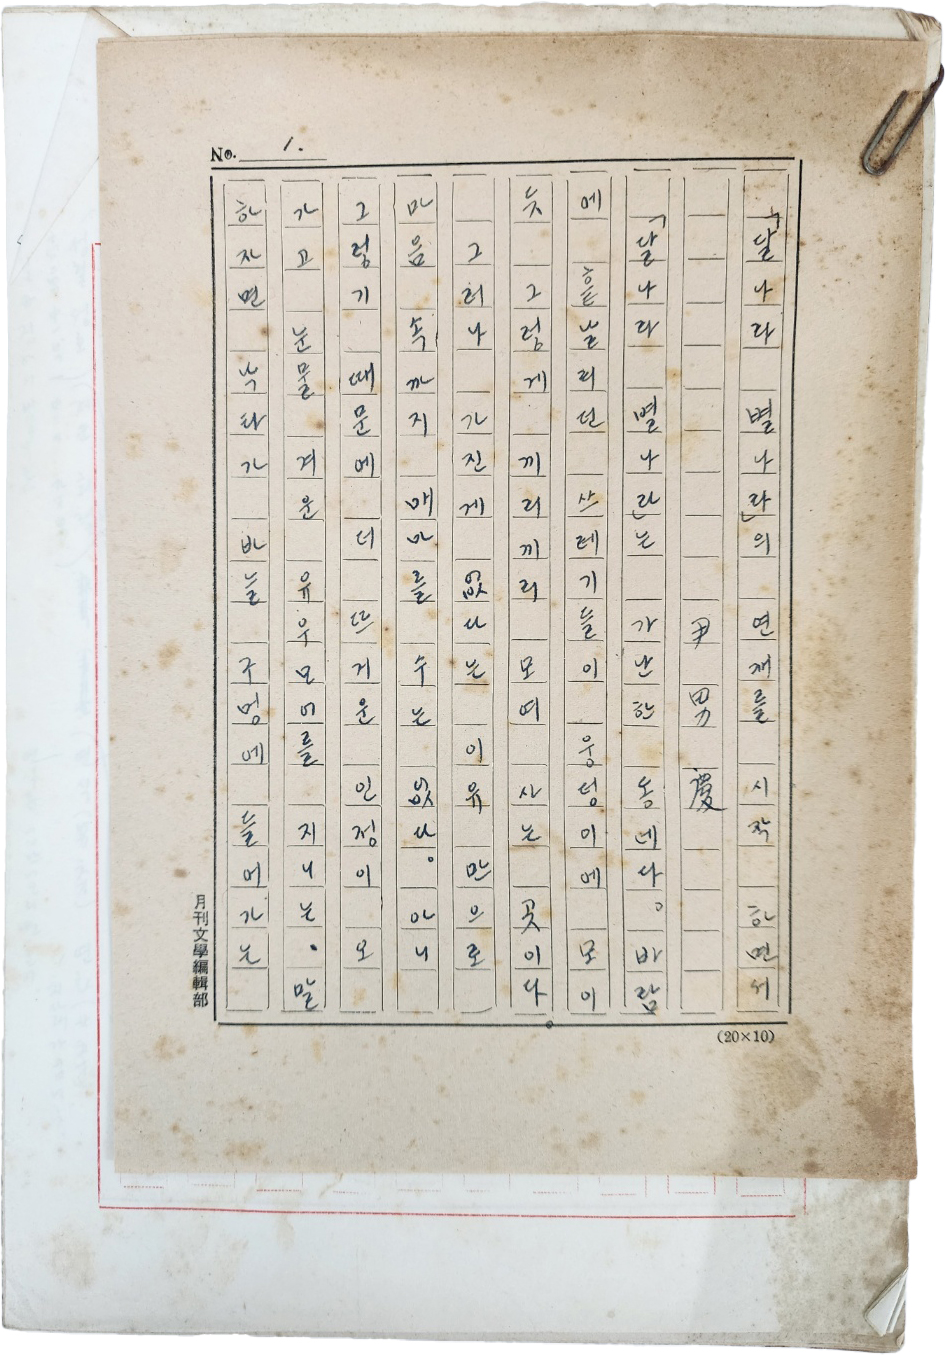 No. 1.
「달나라 별나라」의 연재를 시작 하면서
尹男慶
「달나라 별나라」는 가난한 동네다. 바람
에 흩날리던 쓰레기들이 웅덩이에 모이
듯 그렇게 끼리끼리 모여 사는 곳이다
그러나 가진게 없다는 이유 만으로
마음 속까지 메마를 수는 없다. 아니
그렇기 때문에 더 뜨거운 인정이 오
가고 눈물 겨운 유우모어를 지니는. 말
하자면 낙타가 바늘 구멍에 들어가는
月刊文學編輯部
(20×10)